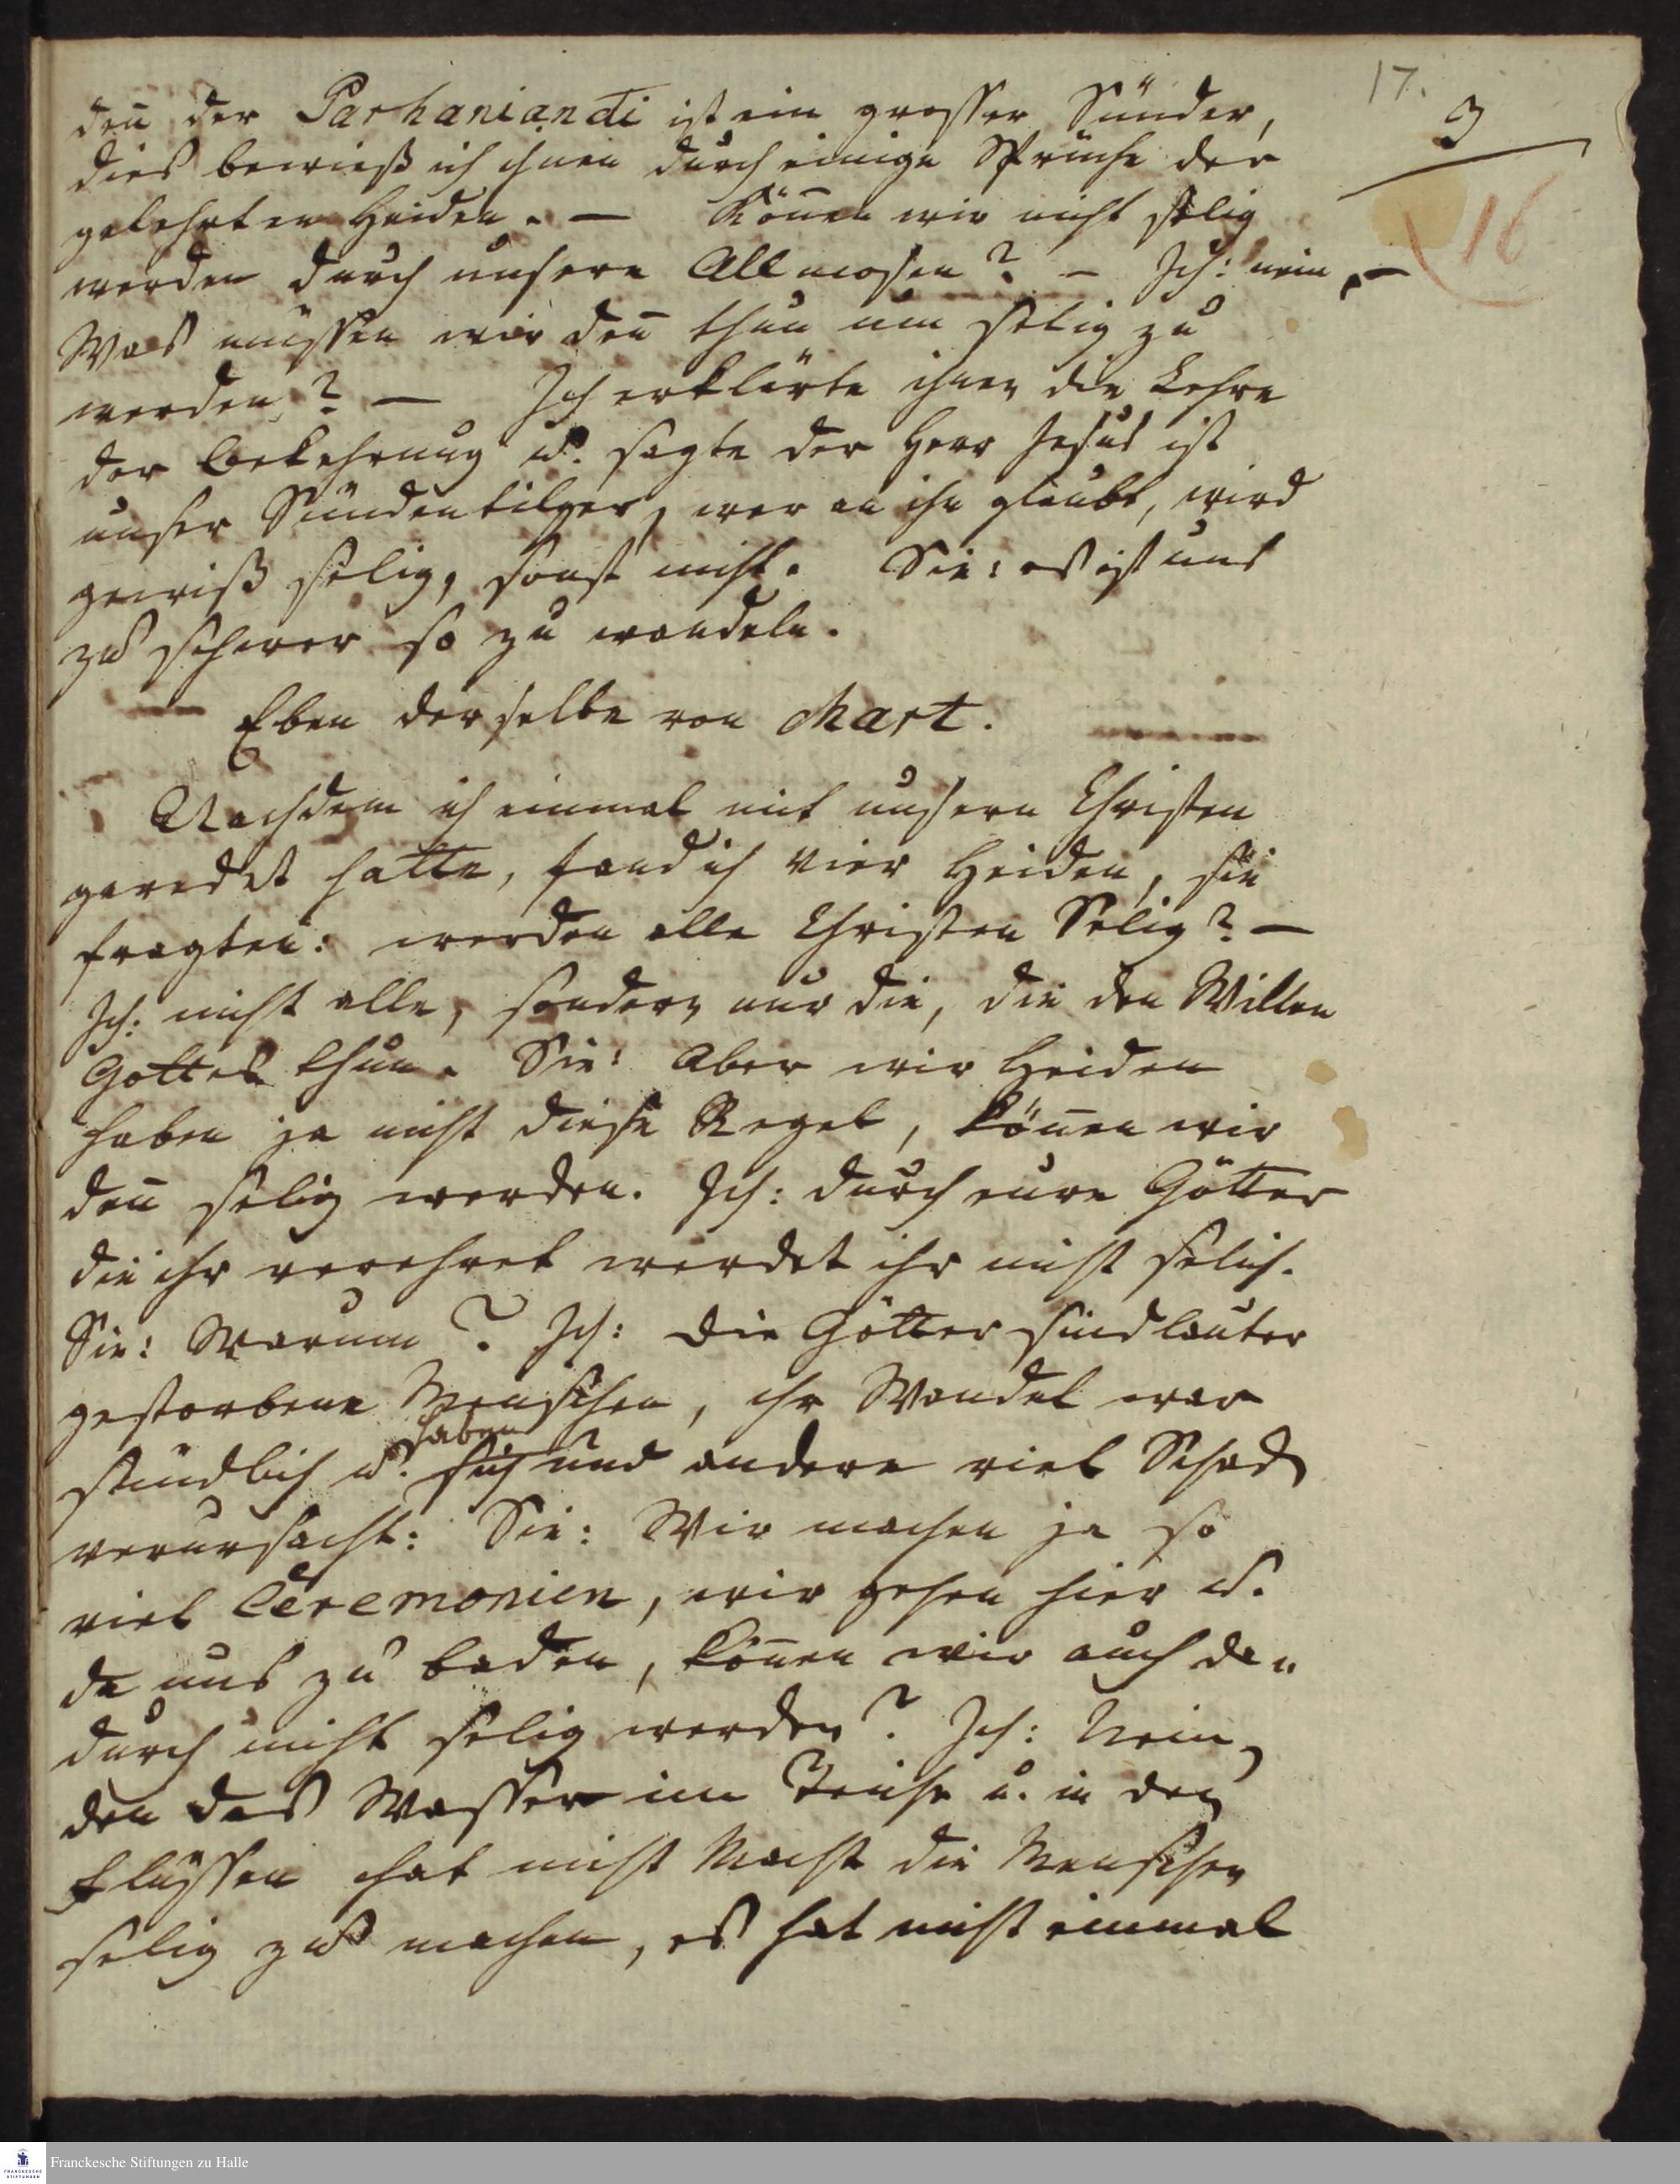 17.
3
16
deñ der Parhaniandi ist ein grosser Sünder,
dies bewieß ich ihnen durch einige Sprüche der
gelehrten Heiden. — Köñen wir nicht selig
werden durch unsere Allmosen? — Ich: nein, —
Was müssen wir deñ thun um selig zu
werden? — Ich erklärte ihnen die Lehre
der Bekehrung u. sagte der Herr Jesus ist
unser Sündentilger, wer an ihn glaubt, wird
gewiß selig, sonst nicht. Sie: es ist uns
zu schwer so zu wandeln.
Eben derselbe von Mart.
Nachdem ich einmal mit unsern Christen
geredet hatte, fand ich vier Heiden, sie
fragten: werden alle Christen Selig? —
Ich: nicht alle, sondern nur die, die den Willen
Gottes thun. Sie: Aber wir Heiden
haben ja nicht diese Regel, köñen wir
deñ selig werden. Ich: durch eure Götter
die ihr verehret werdet ihr nicht selich.
Sie: Warum? Ich: die Götter sind lauter
gestorbene Menschen, ihr Wandel war
haben
sündlich u. sich und andere viel Schaden
verursacht: Sie: Wir machen ja so
viel Ceremonien, wir gehen hier u.
da uns zu baden, köñen wir auch da„
durch nicht selig werden? Ich: Nein,
den das Wasser im Teiche u. in den
Flüssen hat nicht Macht die Menschen
selig zu machen, es hat nicht einmal
Franckesche Stiftungen zu Halle
FRANCKESCHE
STIFTUNGEN